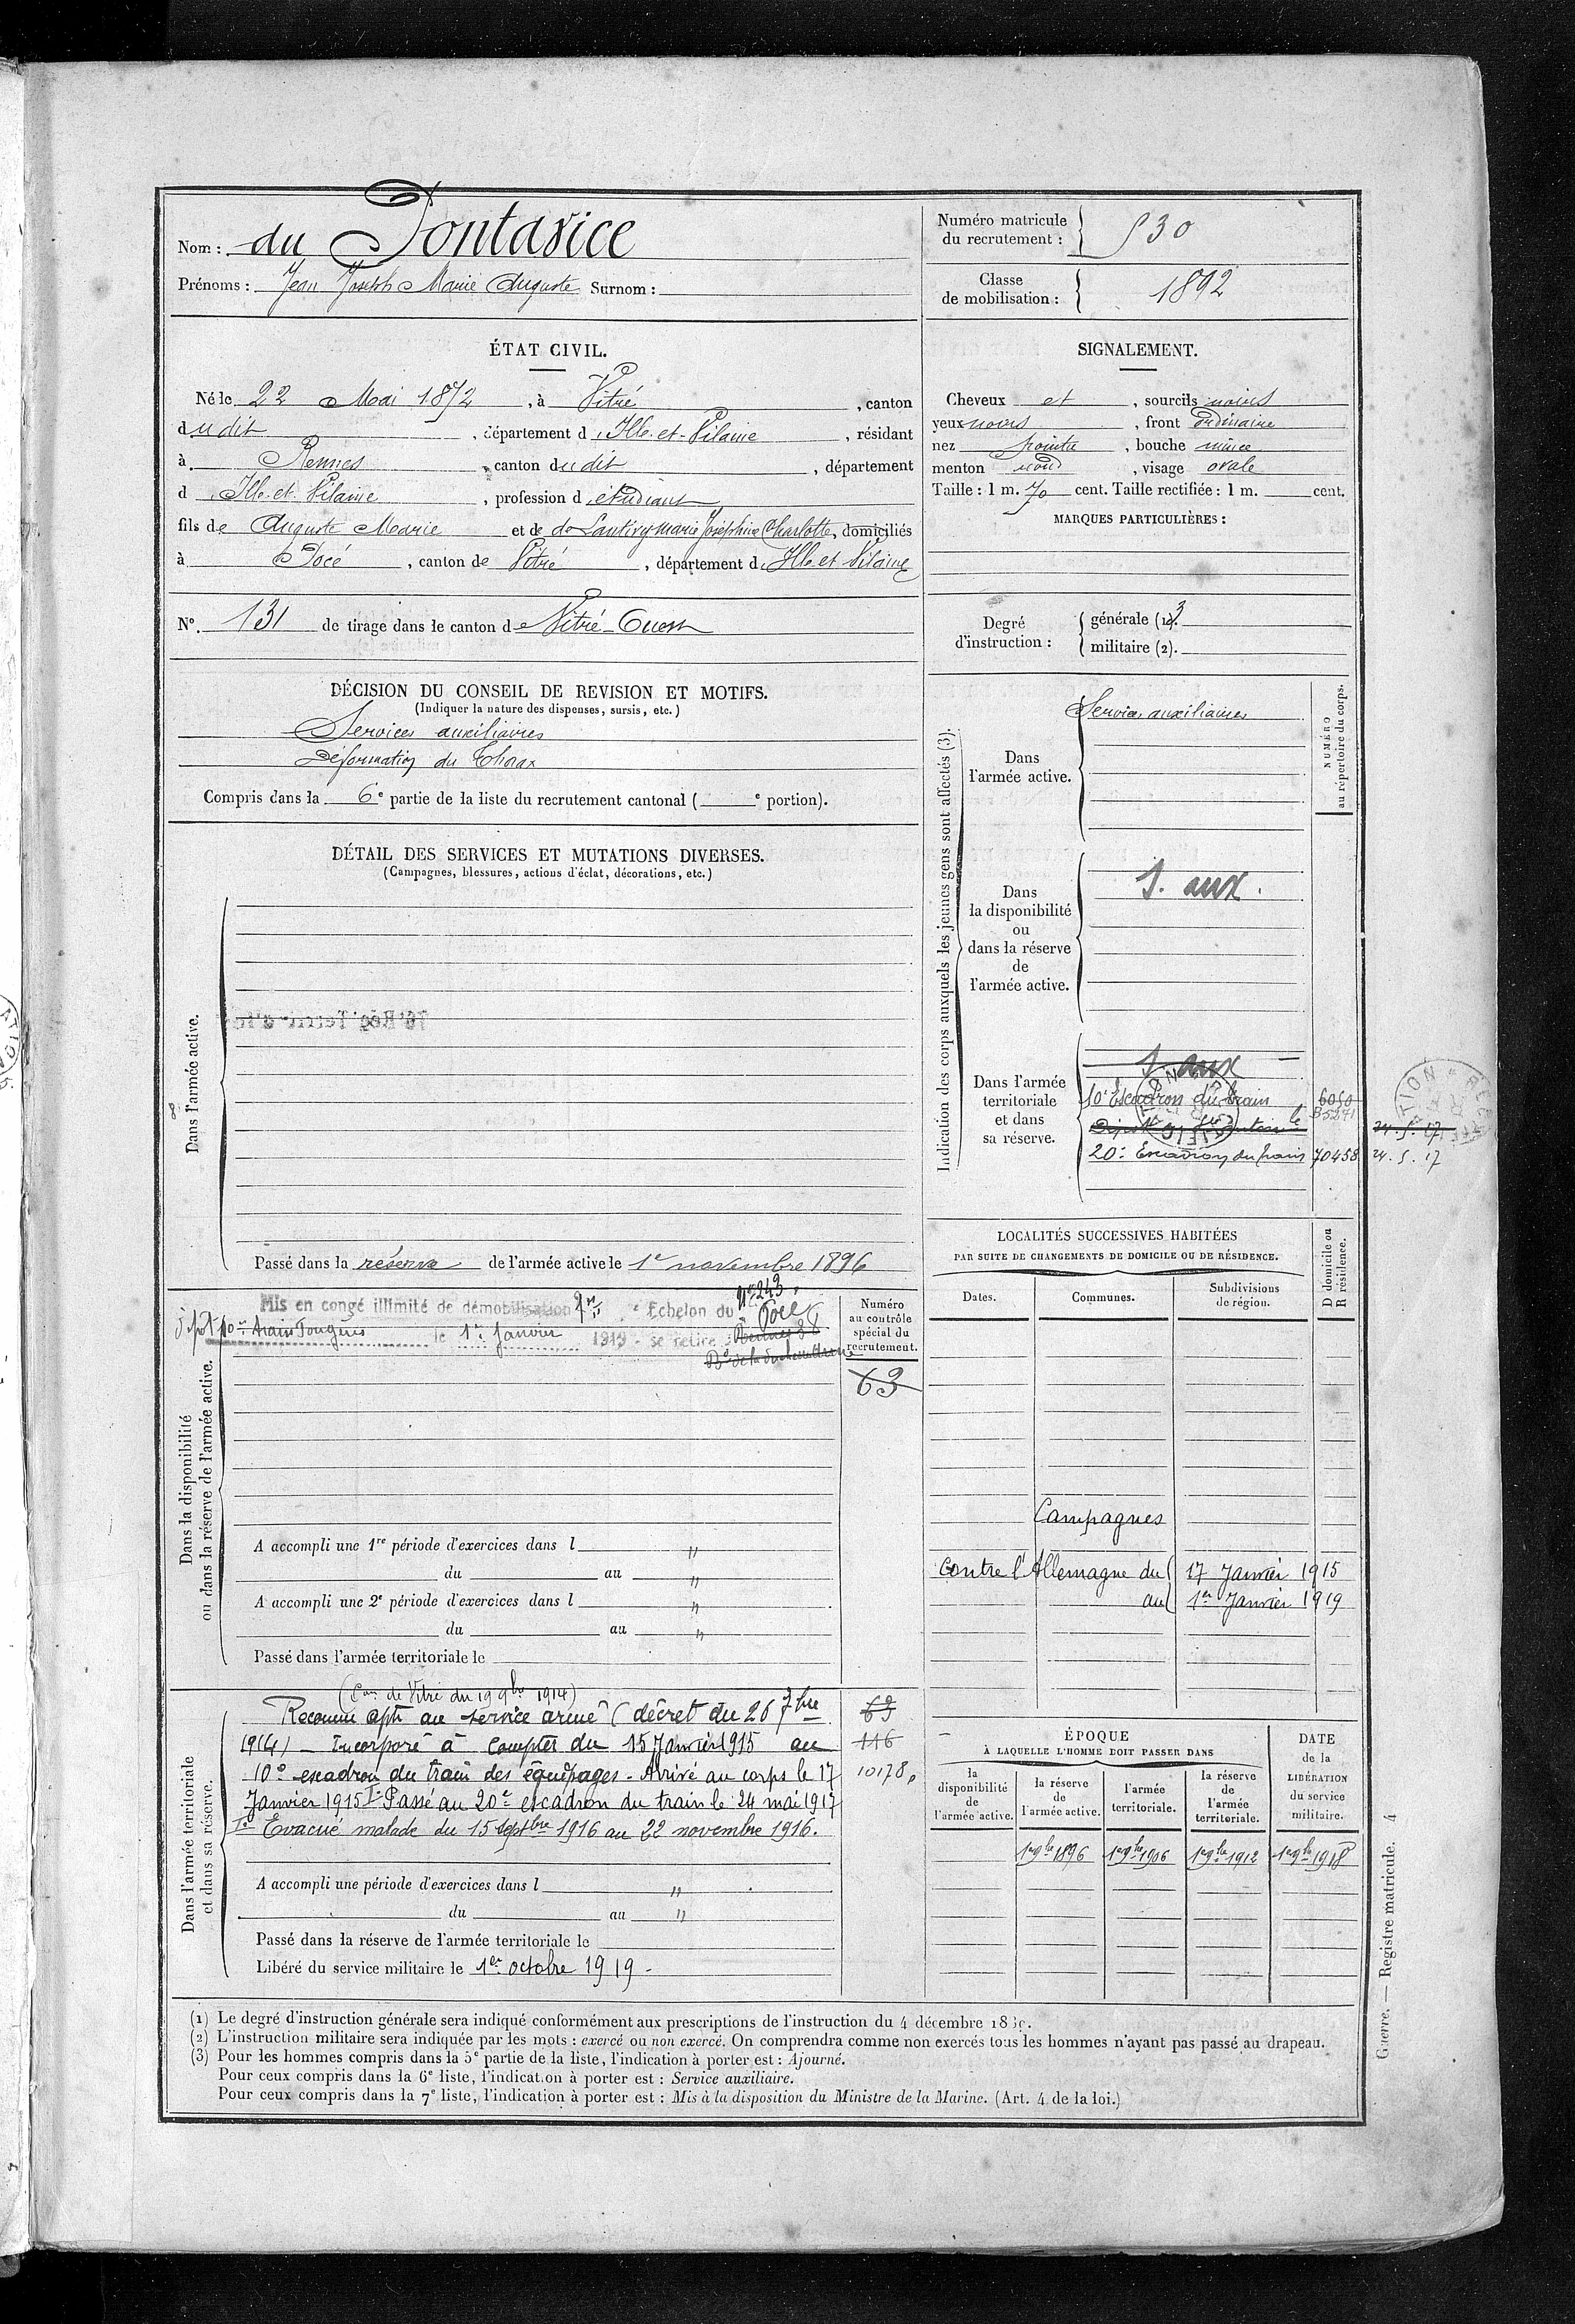 Nom : du Pontavice
Prénoms : Jean Joseph Marie Auguste Surnom :
Numéro matricule du recrutement : 530
Classe de mobilisation : 1892
ÉTAT CIVIL.
Né le 22 Mai 1872, à Vitré, canton
dudit, département d'Ille-et-Vilaine, résidant
à Rennes, canton dudit, département
d'Ille-et-Vilaine, profession d'étudiant
fils de Auguste Marie et de de Lantivy Marie Joséphine Charlotte, domiciliés
à Pocé, canton de Vitré, département d'Ille et Vilaine
N° 131 de tirage dans le canton de Vitré-Ouest
SIGNALEMENT.
Cheveux et, sourcils noirs
yeux noirs, front ordinaire
nez pointu, bouche mince
menton rond, visage ovale
Taille : 1 m. 70 cent. Taille rectifiée : 1 m. cent.
MARQUES PARTICULIÈRES :
Degré d'instruction : générale (1). 3
militaire (2).
DÉCISION DU CONSEIL DE REVISION ET MOTIFS.
(Indiquer la nature des dispenses, sursis, etc.)
Services auxiliaires
Déformation du Thorax
Compris dans la 6e partie de la liste du recrutement cantonal ( e portion).
DÉTAIL DES SERVICES ET MUTATIONS DIVERSES.
(Campagnes, blessures, actions d'éclat, décorations, etc.)
Dans l'armée active.
Passé dans la réserve de l'armée active le 1er novembre 1896
Indication des corps auxquels les jeunes gens sont affectés (3).
NUMÉRO au répertoire du corps.
Dans l'armée active.
Services auxiliaires
Dans la disponibilité ou dans la réserve de l'armée active.
S. aux.
Dans l'armée territoriale et dans sa réserve.
S. aux
10e Escadron du train 6050
B5271
24.5.17
20e Escadron du train 70458 24.5.17
Dans la disponibilité ou dans la réserve de l'armée active.
Mis en congé illimité de démobilisation Echelon du N° 243
dépôt 10e train Fougères le 1er Janvier 1919 - se retire Pocé
Rennes 38
Bd de la duchesse Anne
Numéro au contrôle spécial du recrutement.
63
A accompli une 1re période d'exercices dans l "
du au "
A accompli une 2e période d'exercices dans l "
du au "
Passé dans l'armée territoriale le
LOCALITÉS SUCCESSIVES HABITÉES
PAR SUITE DE CHANGEMENTS DE DOMICILE OU DE RÉSIDENCE.
Dates.
Communes.
Subdivisions de région.
D domicile ou R résidence.
Campagnes
Contre l'Allemagne du 17 Janvier 1915
au 1er Janvier 1919
Dans l'armée territoriale et dans sa réserve.
(Con de Vitré du 19 9bre 1914)
Reconnu apte au service armé (décret du 26 7bre 63
1914) - Incorporé à compter du 15 Janvier 1915 au 116
10e escadron du train des équipages - Arrivé au corps le 17 10178
Janvier 1915 Passé au 20e escadron du train le 24 mai 1917
Evacué malade du 15 Septbre 1916 au 22 novembre 1916.
A accompli une période d'exercices dans l "
du au "
Passé dans la réserve de l'armée territoriale le
Libéré du service militaire le 1er octobre 1919 -
ÉPOQUE
À LAQUELLE L'HOMME DOIT PASSER DANS
la disponibilité de l'armée active.
la réserve de l'armée active.
l'armée territoriale.
la réserve de l'armée territoriale.
DATE de la LIBÉRATION du service militaire.
1er 9bre 1896
1er 9bre 1906
1er 9bre 1912
1er 9bre 1918
(1) Le degré d'instruction générale sera indiqué conformément aux prescriptions de l'instruction du 4 décembre 1889.
(2) L'instruction militaire sera indiquée par les mots : exercé ou non exercé. On comprendra comme non exercés tous les hommes n'ayant pas passé au drapeau.
(3) Pour les hommes compris dans la 5e partie de la liste, l'indication à porter est : Ajourné.
Pour ceux compris dans la 6e liste, l'indication à porter est : Service auxiliaire.
Pour ceux compris dans la 7e liste, l'indication à porter est : Mis à la disposition du Ministre de la Marine. (Art. 4 de la loi.)
Guerre. — Registre matricule. 4